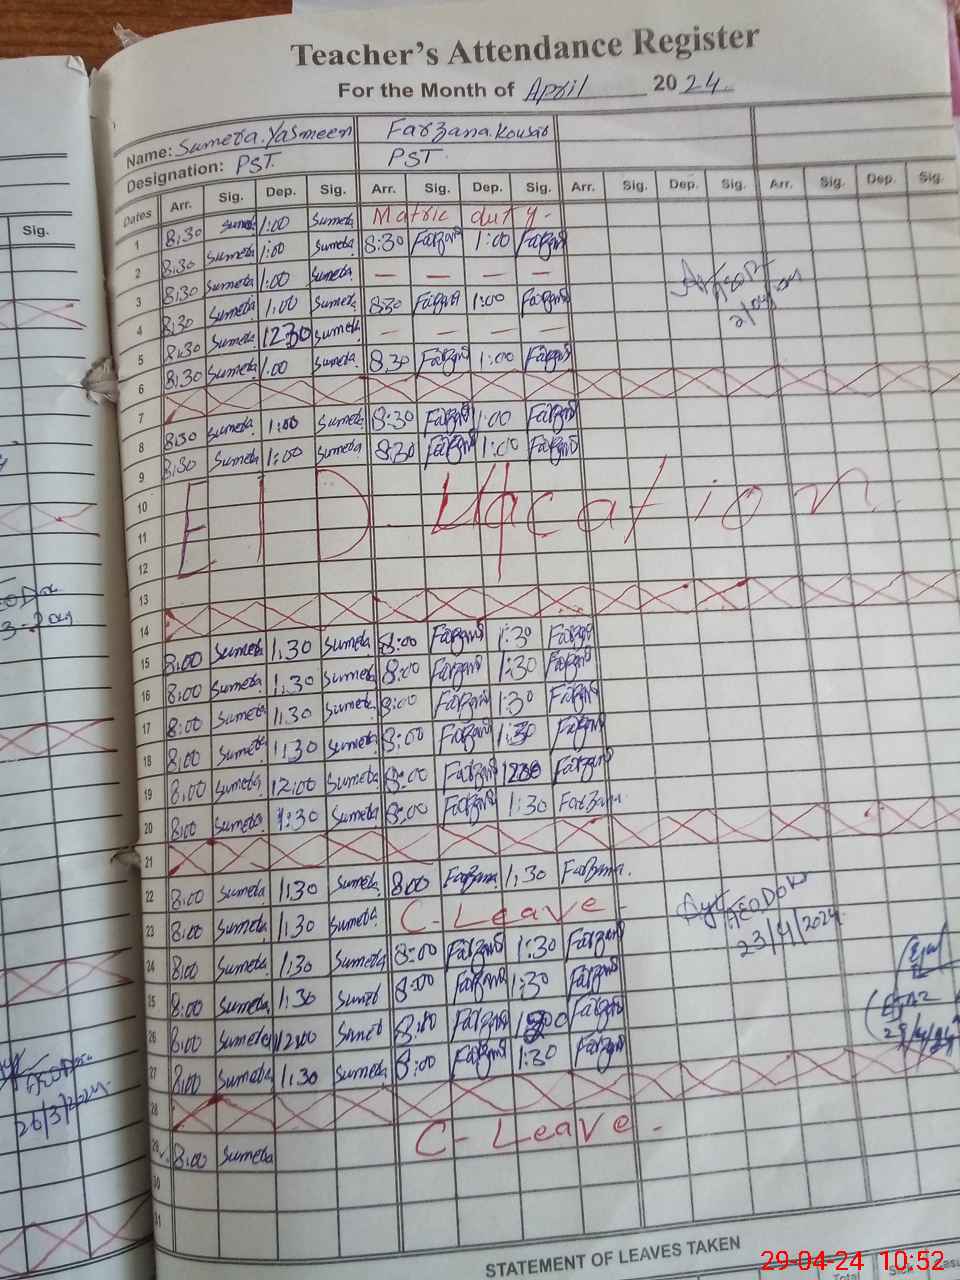 Teacher's Attendance Register
For the Month of April 2024
Name: Sumera.Yasmeen Farzana.Kousar
Designation: PST. PST.
Dates Arr. Sig. Dep. Sig. Arr. Sig. Dep. Sig. Arr. Sig. Dep. Sig. Arr. Sig. Dep. Sig.
Sig.
1 8:30 Sumera 1:00 Sumera Matric duty-
2 8:30 Sumera 1:00 Sumera 8:30 Farzana 1:00 Farzana
3 8:30 Sumera 1:00 Sumera — — — —
4 8:30 Sumera 1:00 Sumera 8:30 Farzana 1:00 Farzana
5 8:30 Sumera 12:30 Sumera — — — —
6 8:30 Sumera 1:00 Sumera 8:30 Farzana 1:00 Farzana
7
8 8:30 Sumera 1:00 Sumera 8:30 Farzana 1:00 Farzana
9 8:30 Sumera 1:00 Sumera 8:30 Farzana 1:00 Farzana
10
11 EID. Vacation.
12
13
14
15 8:00 Sumera 1:30 Sumera 8:00 Farzana 1:30 Farzana
16 8:00 Sumera 1:30 Sumera 8:00 Farzana 1:30 Farzana
17 8:00 Sumera 1:30 Sumera 8:00 Farzana 1:30 Farzana
18 8:00 Sumera 1:30 Sumera 8:00 Farzana 1:30 Farzana
19 8:00 Sumera 12:00 Sumera 8:00 Farzana 1200 Farzana
20 8:00 Sumera 1:30 Sumera 8:00 Farzana 1:30 Farzana.
21
22 8:00 Sumera 1:30 Sumera 8:00 Farzana 1:30 Farzana.
23 8:00 Sumera 1:30 Sumera C-Leave-
23/4/2024
24 8:00 Sumera 1:30 Sumera 8:00 Farzana 1:30 Farzana
25 8:00 Sumera 1:30 Sumera 8:00 Farzana 1:30 Farzana
26 8:00 Sumera 12:00 Sumera 8:00 Farzana Farzana
27 8:00 Sumera 1:30 Sumera 8:00 Farzana 1:30 Farzana
26/3/2024
28
29 8:00 Sumera C-Leave.
30
31
STATEMENT OF LEAVES TAKEN
Total
29-04-24 10:52